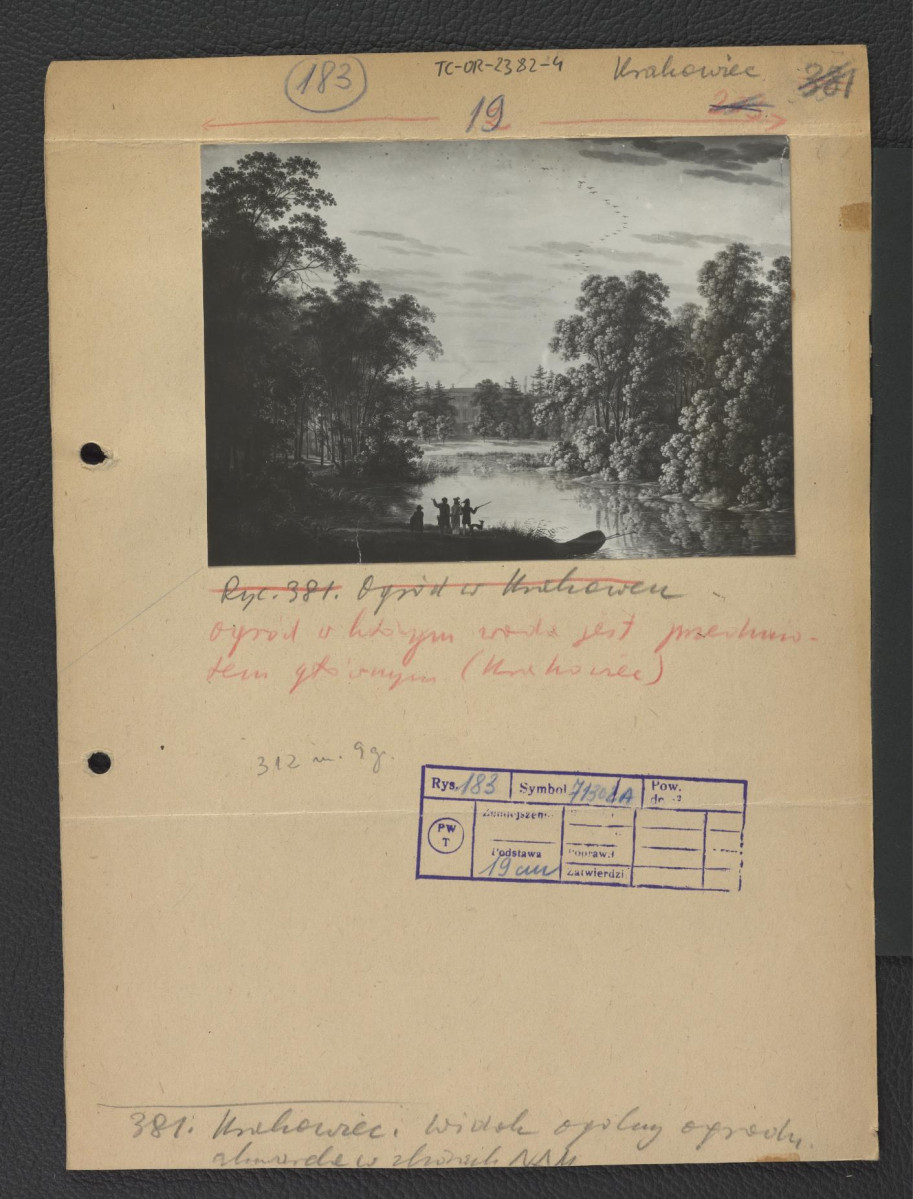 183 TC-OR-2382-4 Krakowiec 381
19
Ryc. 381. Ogród w Krakowcu
Ogród w którym woda jest przedmio-
tem głównym (Krakowiec)
312 w. 9 g.
Rys. 183 Symbol 71308A Pow.
PW T
Zmniejszeni
Podstawa Popraw.
19 cm Zatwierdzi
381. Krakowiec. Widok ogólny ogrodu.
akwarela w zbiorach